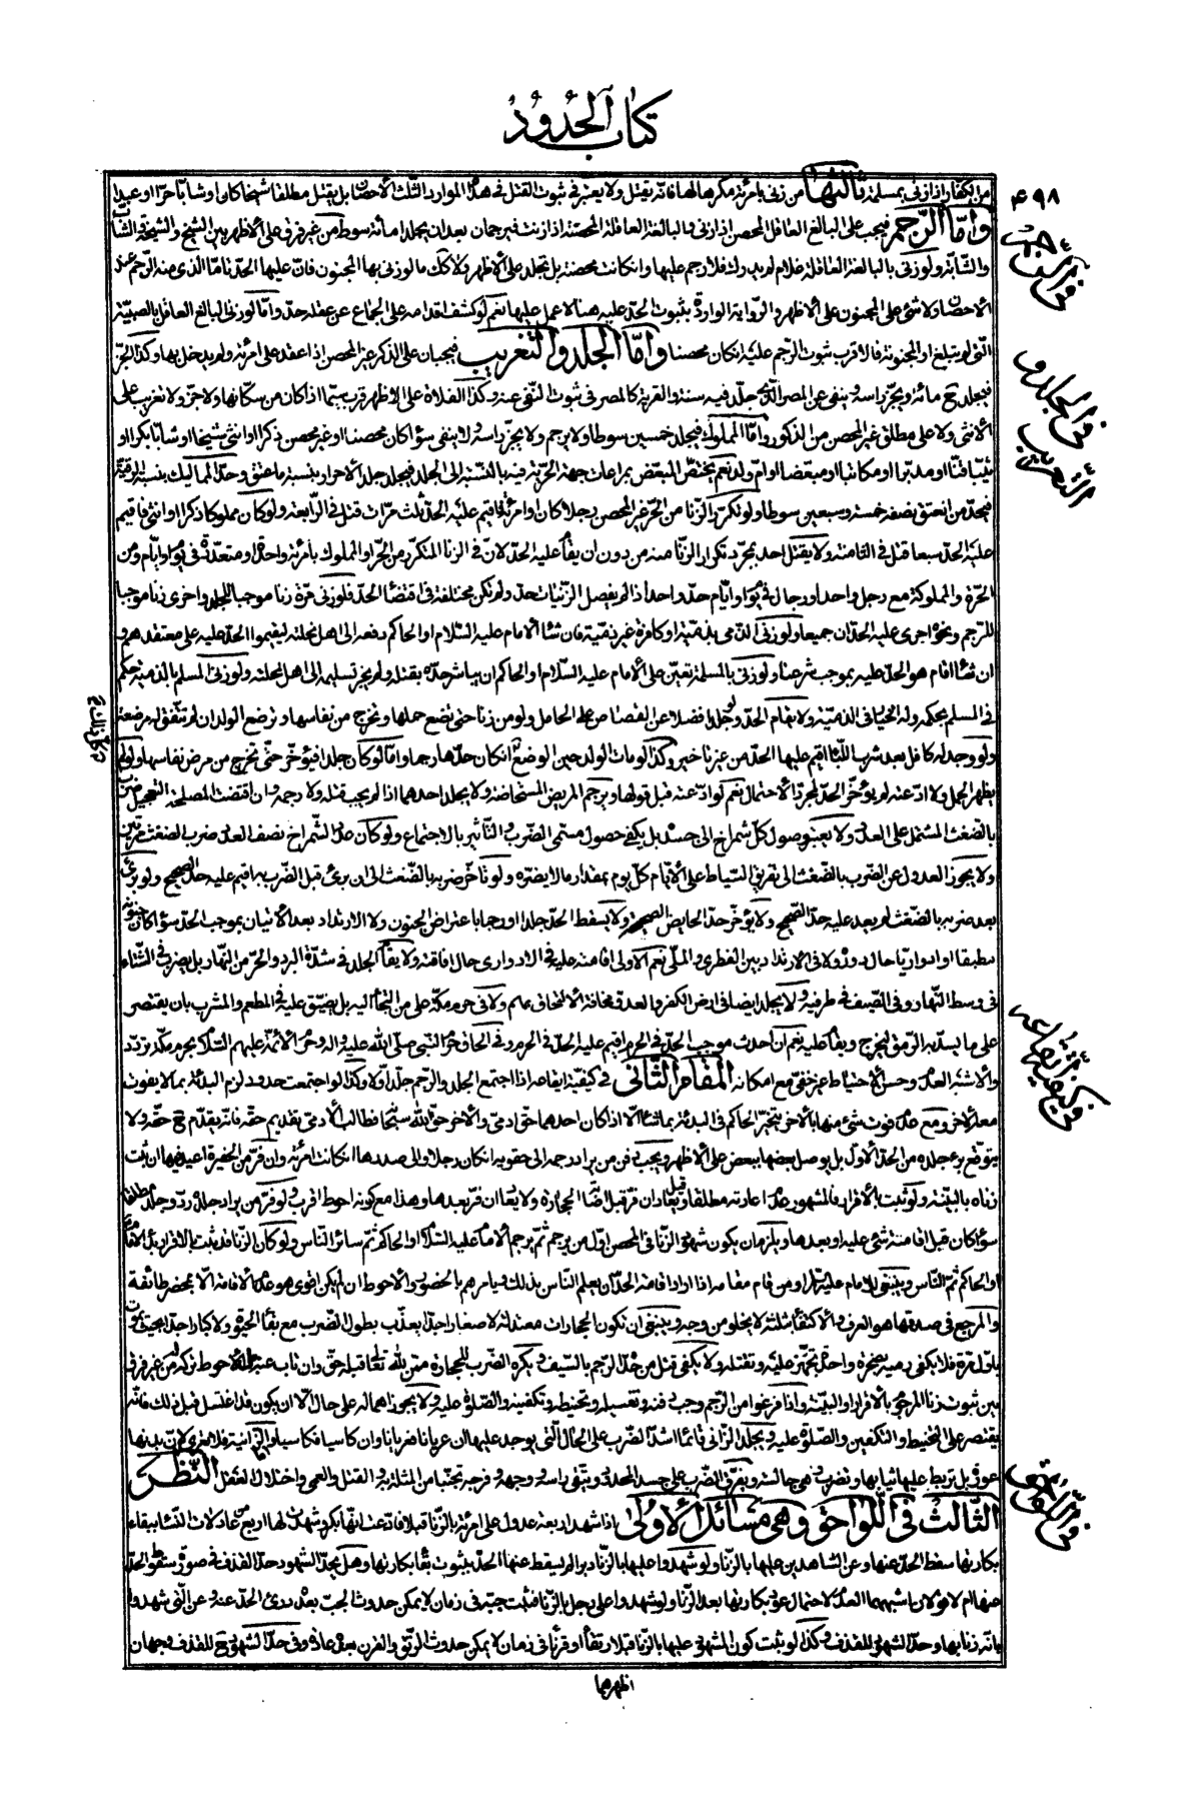 كتاب الحدود
۴۹۸
من الكفار واذا زنى بمسلمة ثالثها من زنى بامرئة مكرها لها فانه يقتل ولا يعتبر فى ثبوت القتل فى هذه الموارد الثلث الاحصان بل يقتل مطلقا شيخا كان او شابا حرا او عبدا
واما الرجم فيجب على البالغ العاقل المحصن اذا زنى وبالبالغة العاقلة المحصنة اذا زنت فيرجمان بعد ان يجلدا مائة سوط من غير فرق على الاظهر بين الشيخ والشيخة والشاب
والشابة ولو زنى بالبالغة العاقلة غلام لم يدرك فلا رجم عليها وان كانت محصنة بل تجلد على الاظهر ولا كك ما لو زنى بها المجنون فان عليها الحد تاما الذى منه الرجم عند
الاحصان ولا شئ على المجنون على الاظهر والرواية الواردة بثبوت الحد عليه هنا لا عمل عليها نعم لو كشف اقدامه على الجماع عن عقله حد واما لو زنى البالغ العاقل بالصبية
التى لم تبلغ او المجنونة فالاقرب ثبوت الرجم عليه ان كان محصنا واما الجلد والتغريب فيجبان على الذكر غير المحصن اذا عقد على امرئة ولم يدخل بها وكذا الجز
فيجلد مائة ويجز راسه وينفى عن المصر الذى جلد فيه سنة والقرية كالمصر فى ثبوت النفى عنه وكذا الفلاة على الاظهر قرب بيتما اذا كان من سكانها ولا جز ولا تغريب على
الانثى ولا على مطلق غير المحصن من الذكور واما المملوك فيجلد خمسين سوطا ولا يرجم ولا يجز راسه ولا ينفى سواء كان محصنا او غير محصن ذكرا او انثى شيخا او شابا بكرا او
ثيبا قنا او مدبرا او مكاتبا او مبعضا او ام ولد نعم يختص المبعض بمراعات جهة الحرية فيه بالنسبة الى الجلد فيجلد جلد الاحرار بنسبة ما عتق وحد المماليك بنسبة الرقية
فيحد من انعتق نصفه خمسة وسبعين سوطا ولو تكرر الزنا من الحر غير المحصن رجلا كان او امرئة فاقيم عليه الحد ثلث مرات قتل فى الرابعة ولو كان مملوكا ذكرا او انثى فاقيم
عليه الحد سبعا قتل فى الثامنة ولا يقتل احد بمجرد تكرار الزنا منه من دون ان يقام عليه الحد لان فى الزنا المتكرر من الحر او المملوك بامرئة واحدة او متعددة فى يوم او ايام ومن
الحرة والمملوكة مع رجل واحد او رجال فى يوم او ايام حد واحد اذا لم يفصل الزنيات حد ولم تكن مختلفة فى اقتضاء الحد فلو زنى مرة زنا موجبا للجلد واخرى زنا موجبا
للرجم ونحوه اجرى عليه الحدان جميعا ولو زنى الذمى بذمية او كافرة غير ذمية فان شاء الامام عليه السلام او الحاكم دفعه الى اهل نحلته ليقيموا الحد عليه على معتقدهم و
ان شاء اقام هو الحد عليه بموجب شرعنا ولو زنى بالمسلمة تعين على الامام عليه السلام او الحاكم ان يباشر حده بقتله ولم يجز تسليمه الى اهل نحلته ولو زنى المسلم بالذمية حكم
فى المسلم بحكمه وله الخيار فى الذمية ولا يقام الحد ولو جلدا فضلا عن القصاص على الحامل ولو من زنا حتى تضع حملها وتخرج من نفاسها وترضع الولد ان لم تتفق له مرضعة
ولو وجد له كافل بعد شرب اللباء اقيم عليها الحد من غير تاخير وكذا لو مات الولد حين الوضع ان كان حدها رجما واما لو كان جلدا فيؤخر حتى تخرج من مرض نفاسها ولو لم
يظهر الحمل ولا ادعته لم يؤخر الحد لمجرد الاحتمال نعم لو ادعته قبل قولها ويرجم المريض والمستحاضة ولا يجلد احدهما اذا لم يجب قتله ولا رجمه وان اقتضت المصلحة التعجيل ضرب
بالضغث المشتمل على العدد ولا يعتبر وصول كل شمراخ الى جسده بل يكفى حصول مسمى الضرب والتأثير بالاجتماع ولو كان عدد الشمراخ نصف العدد ضرب الضغث مرتين
ولا يجوز العدول عن الضرب بالضغث الى تفريق السياط على الايام كل يوم بمقدار ما لا يضره ولو تاخر ضربه بالضغث الى ان برئ قبل الضرب به اقيم عليه حد الصحيح ولو برئ
بعد ضربه بالضغث لم يعد عليه حد الصحيح ولا يؤخر حد الحايض الصحيحة ولا يسقط الحد جلدا او رجما باعتراض الجنون ولا الارتداد بعد الاتيان بموجب الحد سواء كان جنونه
مطبقا او ادواريا حال دوره ولا فى الارتداد بين الفطرى والملى نعم الاولى اقامته عليه فى الادوارى حال افاقته ولا يقام الجلد فى شدة البرد والحر من النهار بل يضرب فى الشتاء
فى وسط النهار وفى الصيف فى طرفيه ولا يجلد ايضا فى ارض الكفر والعدو مخافة الالتحاق بهم ولا فى حرم مكة على من التجأ اليه بل يضيق عليه فى المطعم والمشرب بان يقتصر
على ما يسد به الرمق ليخرج ويقام عليه نعم ان احدث موجب الحد فى الحرم اقيم عليه الحد فى الحرم وفى الحاق حرم النبى صلى الله عليه واله وحرم الائمة عليهم السلام بحرم مكة تردد
والاشبه العدم وحسن الاحتياط غير خفى مع امكانه المقام الثانى فى كيفية ايقاعه اذا اجتمع الجلد والرجم جلد اولا وكذا لو اجتمعت حدود لزم البدئة بما لا يفوت
معه الاخر ومع عدم فوت شئ منها بالاخر يتخير الحاكم فى البدئة بما شاء الا اذا كان احدهما حق ادمى والاخر حق الله سبحانه فطالب الادمى بتقديم حقه فانه يقدم ح حقه ولا
يتوقع برء جلده من الحد الاول بل يوصل بعضها ببعض على الاظهر ويجب دفن من يراد رجمه الى حقويه ان كان رجلا والى صدرها ان كانت امرئة وان فر من الحفيرة اعيد فيها ان ثبت
زناه بالبينة ولو ثبت بالاقرار فالمشهور عدم اعادته مطلقا وقيل يعاد ان فر قبل اصابة الحجارة ولا يعاد ان فر بعدها وهذا مع كونه احوط اقرب ولو فر من يراد جلده رد وجلد مطلقا
سواء كان قبل اقامة شئ عليه او بعدها ويلزم ان يكون شهود الزنا فى المحصن اول من يرجم ثم يرجم الامام عليه السلام او الحاكم ثم سائر الناس ولو كان الزنا قد ثبت بالاقرار بدأ الامام
او الحاكم ثم الناس وينبغى للامام عليه السلام او من قام مقامه اذا اراد اقامة الحد ان يعلم الناس بذلك ويامرهم بالحضور والاحوط ان لم يكن اقوى هو عدم الاقامة الا بمحضر طائفة
والمرجع فى صدقها هو العرف والاكتفاء بثلثة لا يخلو من وجه وينبغى ان تكون الحجارات معتدلة لا صغارا جدا يعذب بطول الضرب مع بقاء الحيوة ولا كبارا جدا بحيث يموت
باول مرة فلا يكفى رميه بصخرة واحدة تجهز عليه وتقتله ولا يكفى قتل من حده الرجم بالسيف ويكره الضرب للحجارة ممن لله تعالى قبله حق وان تاب عنه بل الاحوط تركه من غير فرق
بين ثبوت زنا المرجوم بالاقرار او البينة واذا فرغوا من الرجم وجب دفنه وتغسيله وتحنيطه وتكفينه والصلوة عليه ولا يجوز اهماله على حال الا ان يكون قد اغتسل قبل ذلك فانه
يقتصر على التحنيط والتكفين والصلوة عليه ويجلد الزانى قائما اشد الضرب على الحال التى يوجد عليها ان عريانا ضرب عريانا وان كاسيا فكاسيا واما الزانية فلا تعرى لان بدنها
عورة بل تربط عليها ثيابها وتضرب وهى جالسة ويفرق الضرب على جسد المحدود ويتقى راسه ووجهه وفرجه تجنبا من المثلة به والقتل والعمى واختلال العقل النظر
الثالث فى اللواحق وهى مسائل الاولى اذا شهد اربعة عدول على امرئة بالزنا قبلا فادعت انها بكر وشهدت لها اربع عادلات النساء ببقاء
بكارتها سقط الحد عنها وعن الشاهدين عليها بالزنا ولو شهدوا عليها بالزنا دبرا لم يسقط عنها الحد بثبوت بقاء بكارتها وهل يحد الشهود حد القذف فى صورة سقوط الحد
عنها ام لا قولان اشبههما العدم لاحتمال عود بكارتها بعد الزنا ولو شهدوا على رجل بالزنا فثبت جبه فى زمان لا يمكن حدوث الجب بعده درئ الحد عنه وعن التى شهدوا
بانه زنا بها وحد الشهود للقذف وكذا لو ثبت كون المشهود عليها بالزنا قبلا رتقاء او قرناء فى زمان لا يمكن حدوث الرتق والقرن بعده عادة وفى حد الشهود ح للقذف وجهان
اظهرهما
فى الرجم
فى الجلد و
التغريب
فى كيفية ايقاعه
فى اللواحق